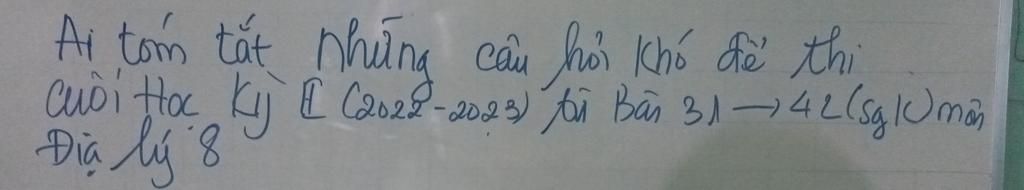 Ai tóm tắt những câu hỏi khó đề thi
cuối Học Kỳ II (2022-2023) từ Bài 31 → 42 (sgk) môn
Địa lý 8